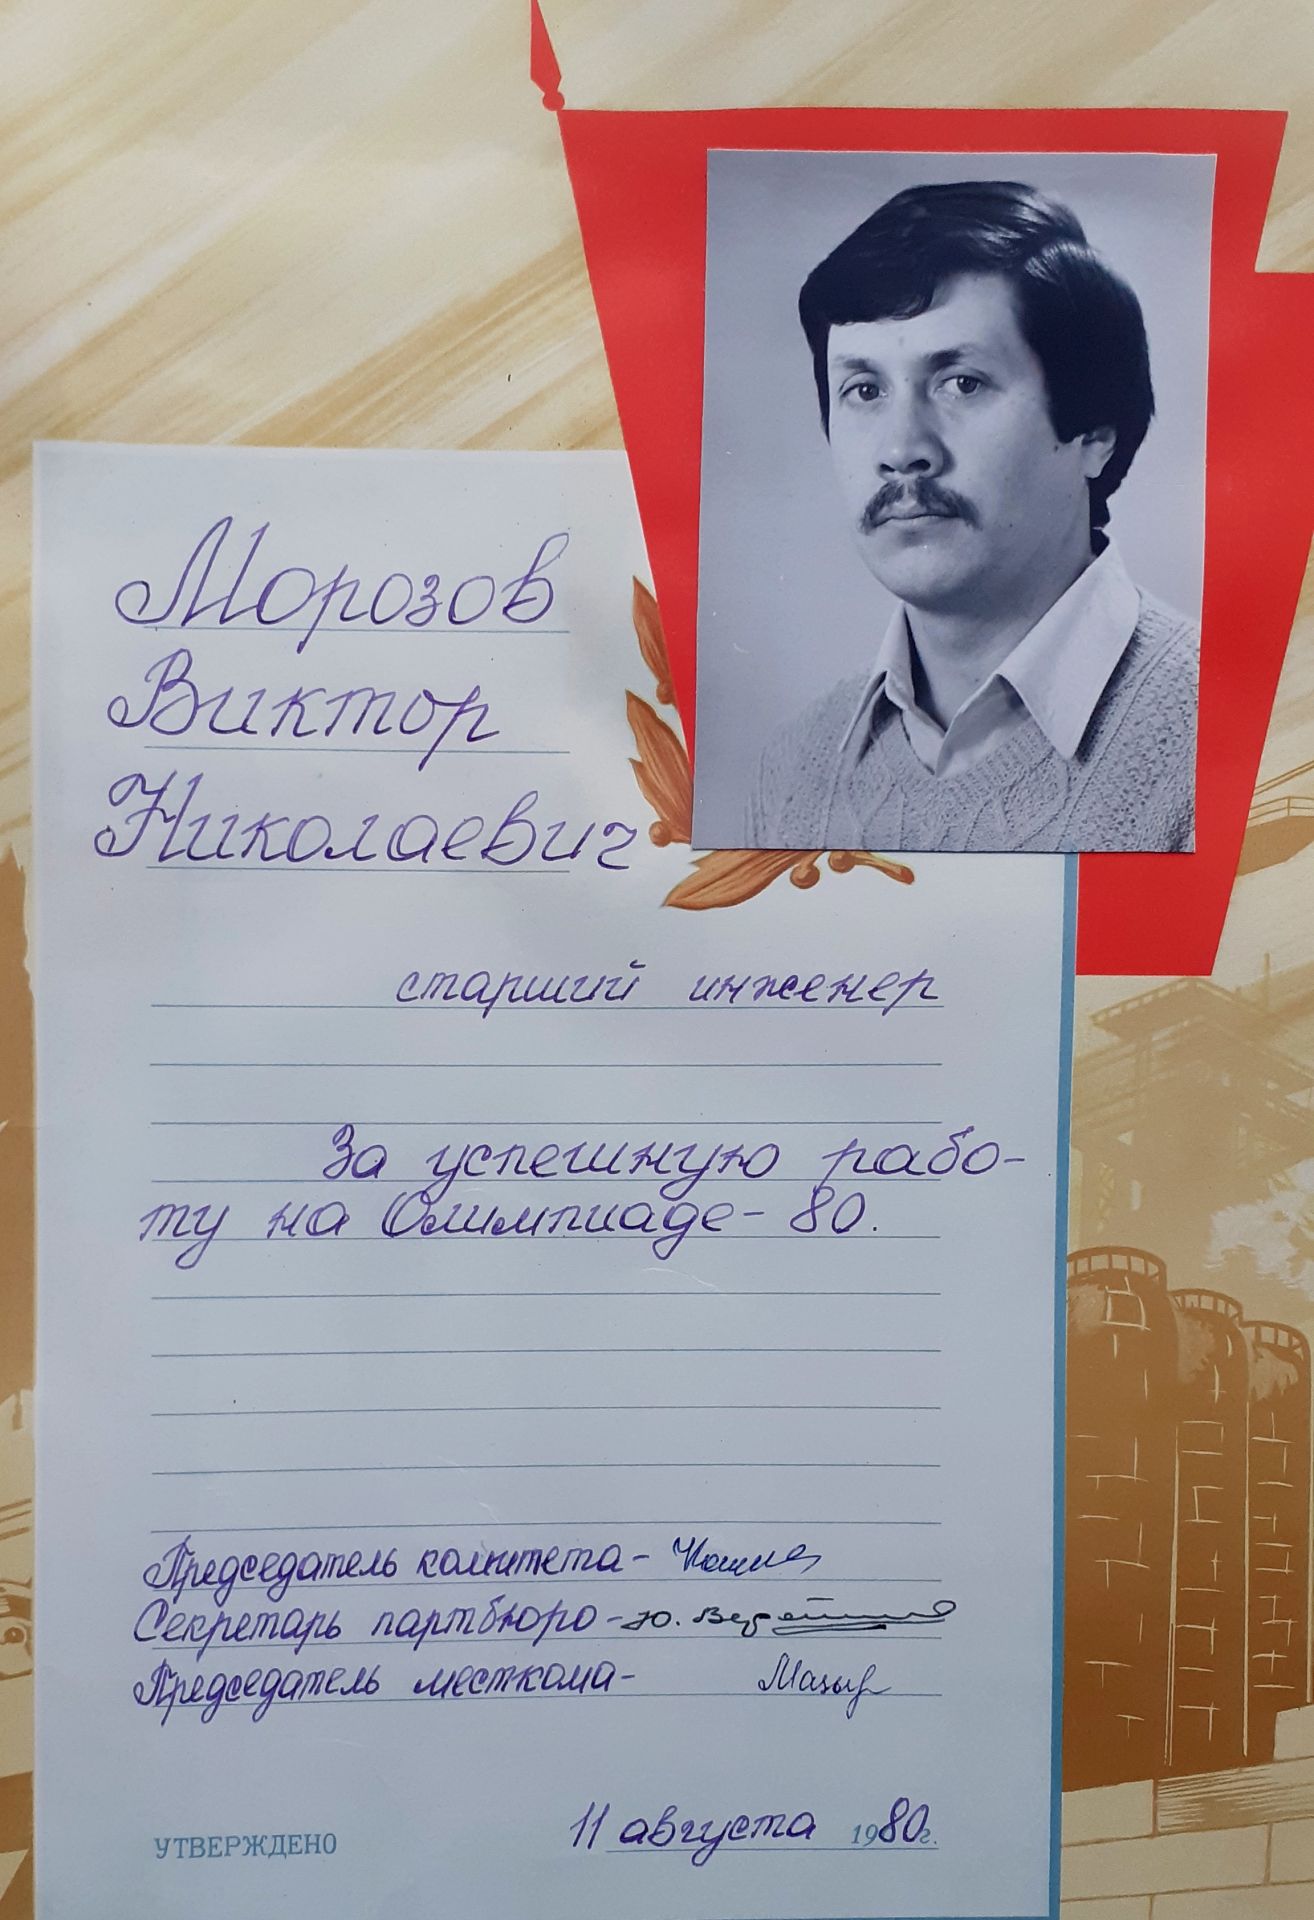 Морозов
Виктор
Николаевич
старший инженер
За успешную рабо-
ту на Олимпиаде-80.
Председатель комитета-
Секретарь партбюро-Ю.
Председатель месткома-
УТВЕРЖДЕНО 11 августа 1980г.